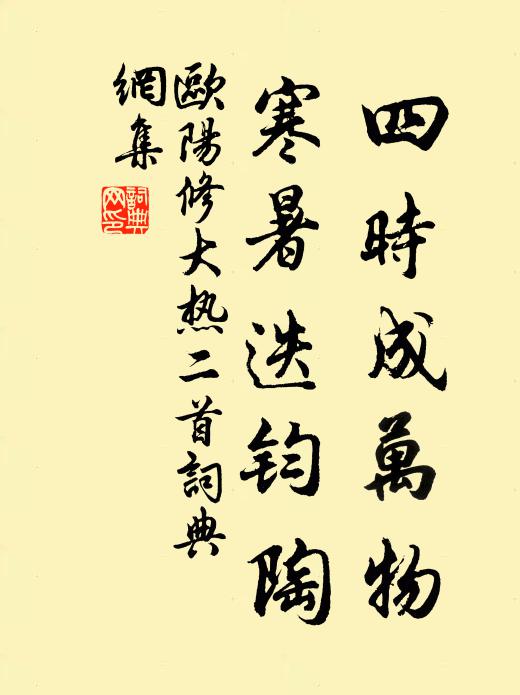 四時成萬物
寒暑迭钧陶
歐陽修大热二首詞典
網集
詞典
网印